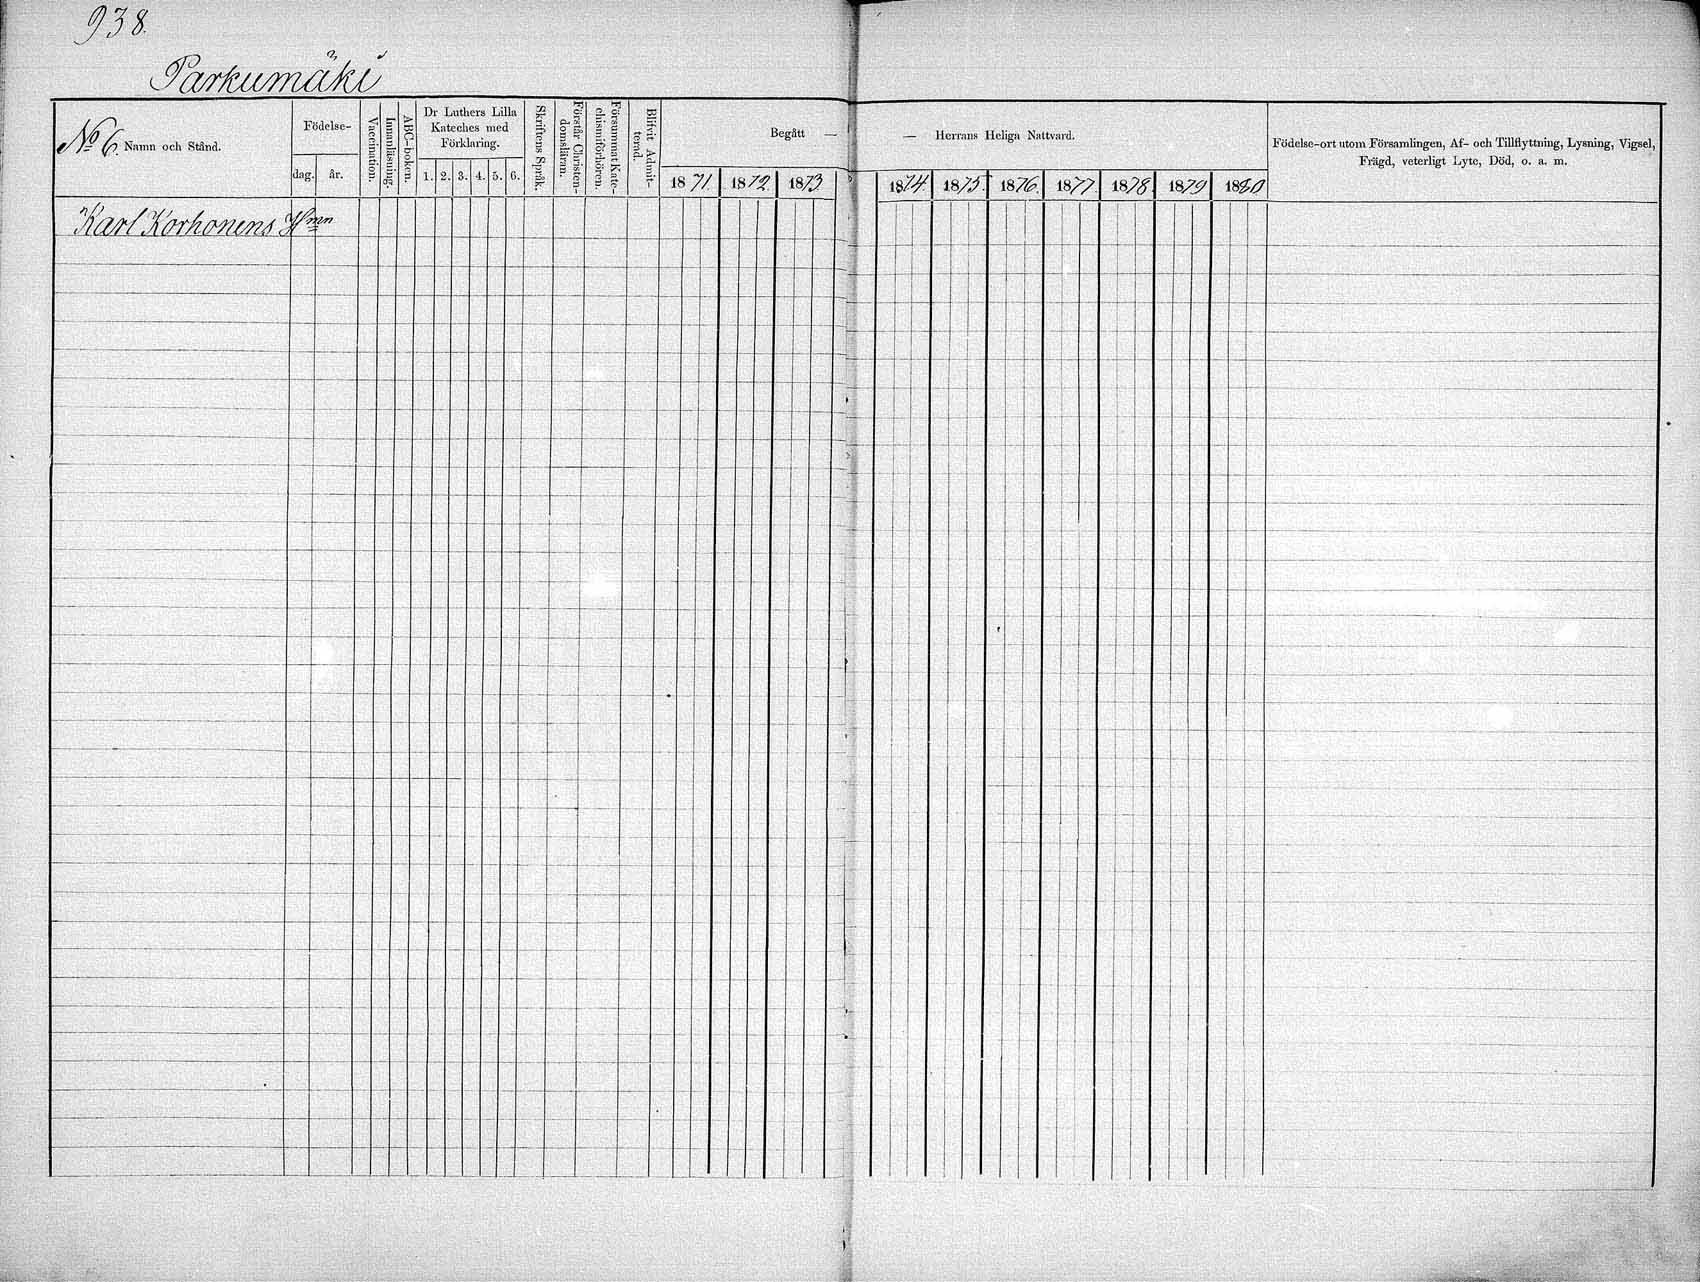 938.
Parkumäki
No 6. Namn och Stånd.
Födelse-
dag. år.
Vaccination.
Innanläsning.
ABC-boken.
Dr Luthers Lilla
Kateches med
Förklaring.
1. 2. 3. 4. 5. 6.
Skriftens Språk.
Förstår Christen-
domsläran.
Försummat Kate-
chismiförhören.
Blifvit Admit-
terad.
Begått —
— Herrans Heliga Nattvard.
1871. 1872. 1873 1874. 1875. 1876. 1877. 1878. 1879 1880
Födelse-ort utom Församlingen, Af- och Tillflyttning, Lysning, Vigsel,
Frägd, veterligt Lyte, Död, o. a. m.
Karl Korhonens Hmn